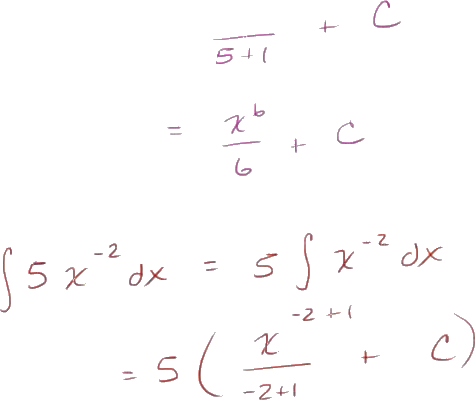 /(5+1) + C
= x^6/6 + C
∫ 5 x^-2 dx = 5 ∫ x^-2 dx
= 5 ( x^(-2+1)/(-2+1) + C )